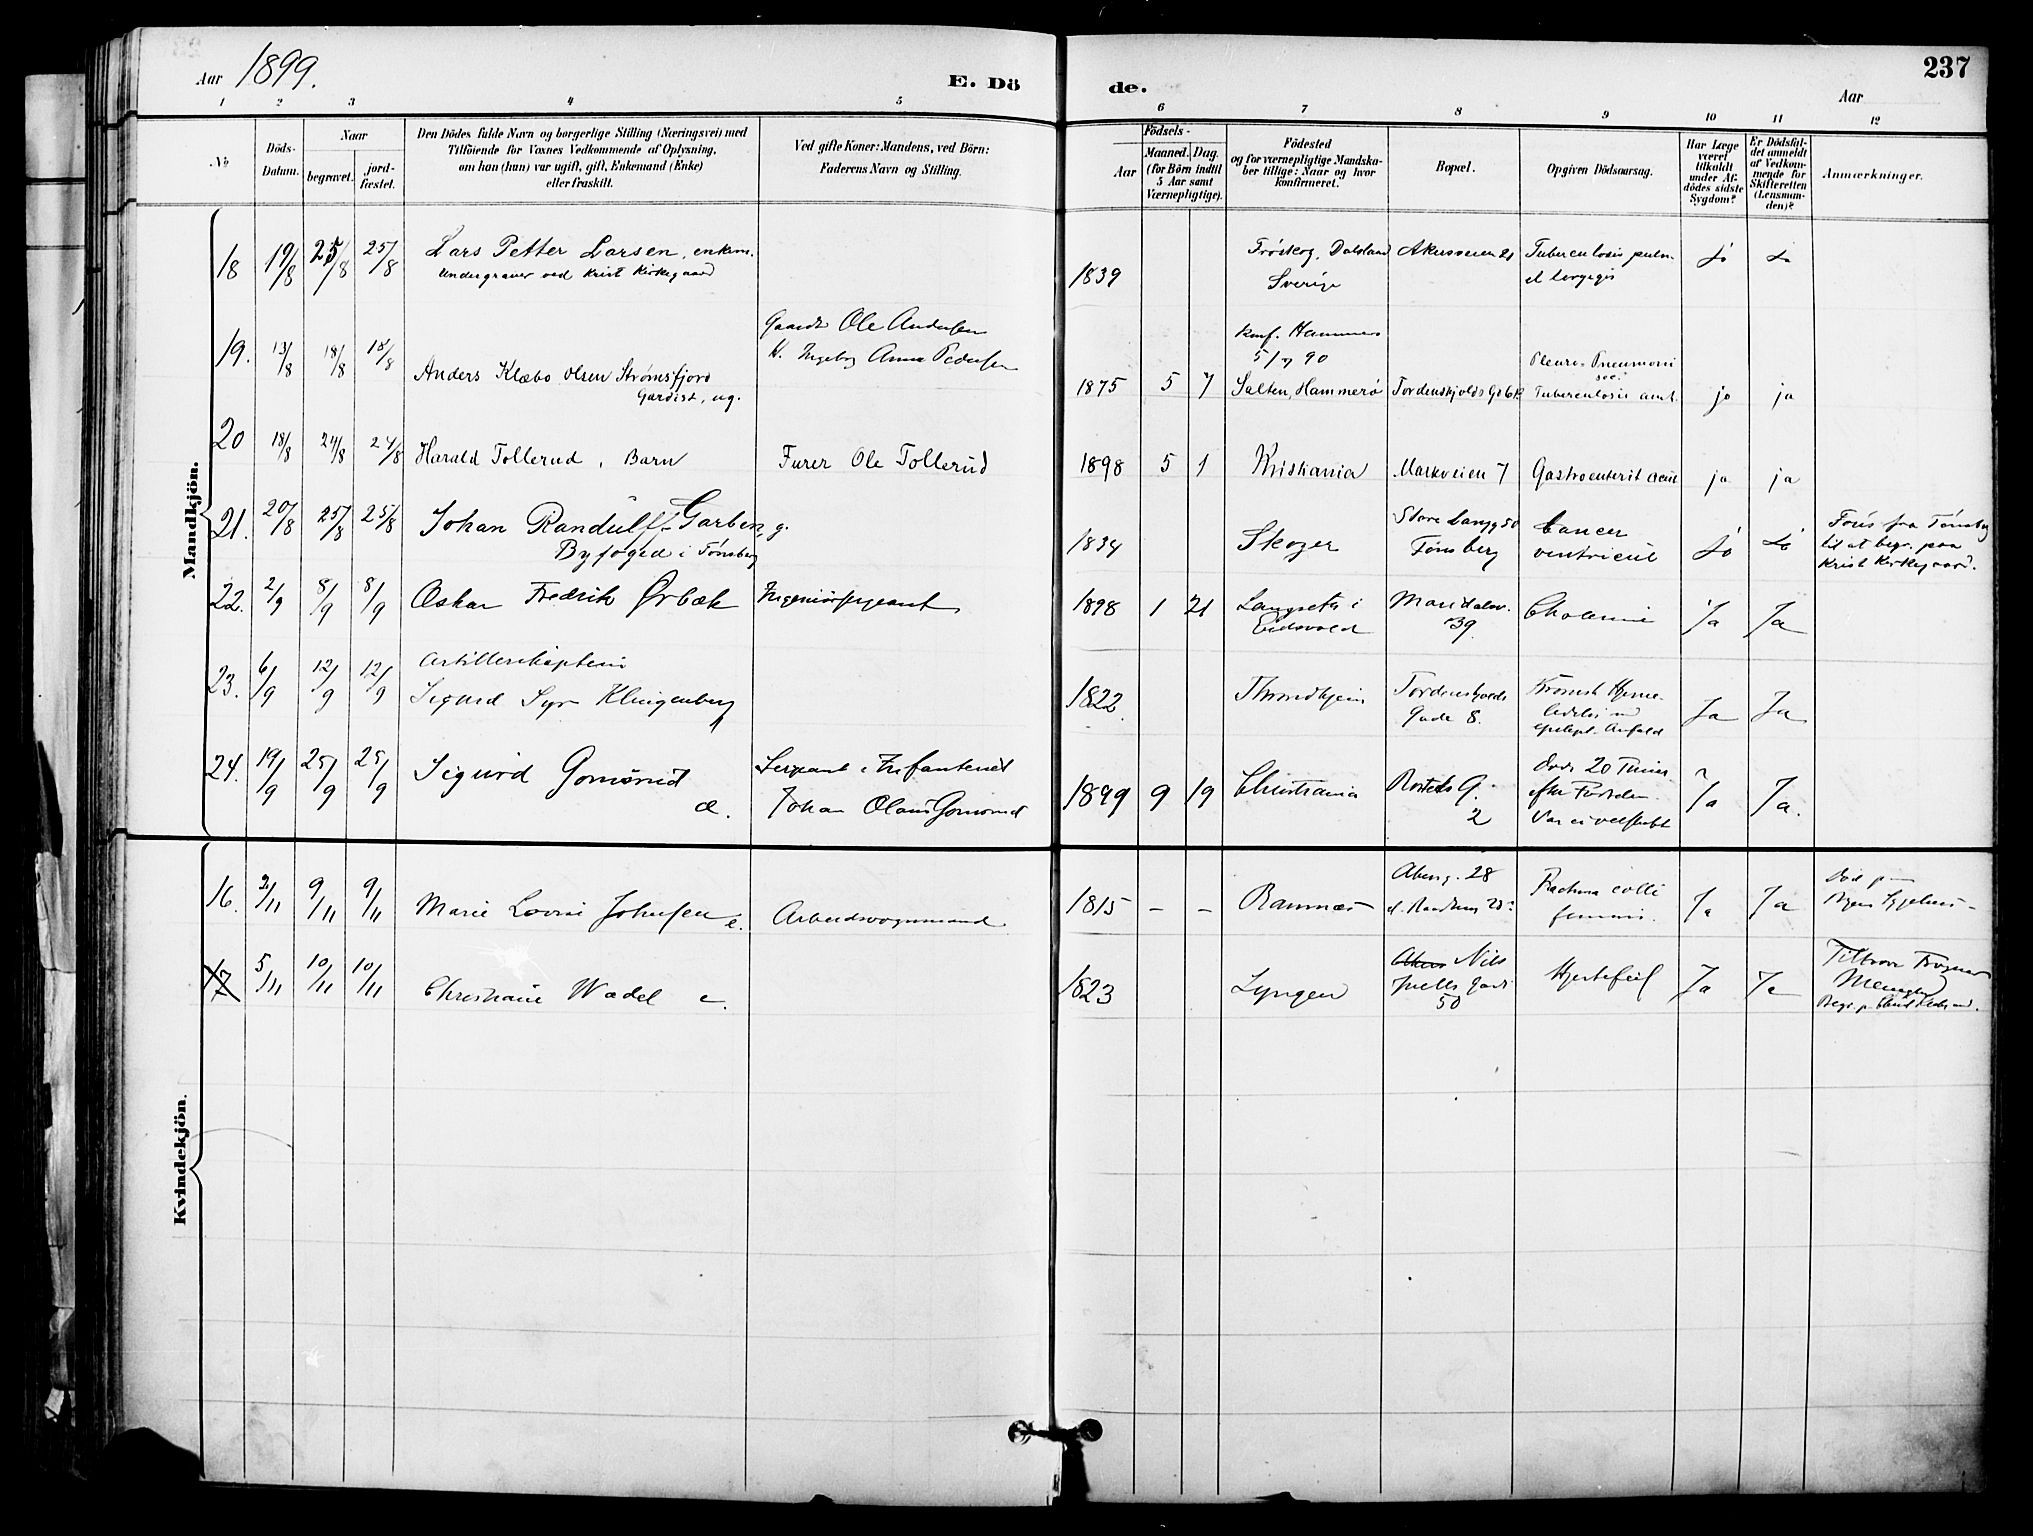 Aar 1899.
E. Dö
de.
237
Aar
1 2 3 4 5 6 7 8 9 10 11 12
No
Döds-
Datum.
Naar
begravet.
jord-
fæstet.
Den Dödes fulde Navn og borgerlige Stilling (Næringsvei) med
Tilföiende for Voxnes Vedkommende af Oplysning,
om han (hun) var ugift, gift, Enkemand (Enke)
eller fraskilt.
Ved gifte Koner: Mandens, ved Börn:
Faderens Navn og Stilling.
Födsels-
Aar
Maaned. Dag.
(for Börn indtil
5 Aar samt
Værnepligtige).
Födested
og for værnepligtige Mandska-
ber tillige: Naar og hvor
konfirmeret.
Bopæl.
Opgiven Dödsaarsag.
Har Læge
været
tilkaldt
under Af-
dödes sidste
Sygdom?
Er Dödsfal-
det anmeldt
af Vedkom-
mende for
Skifteretten
(Lensman-
den)?
Anmærkninger.
Mandkjön.
18 19/8 25/8 25/8 Lars Petter Larsen, enkem.
Undergraver ved Krist Kirkegaard
1839 Fröskog, Dalsland
Sverige
Akersveien 21 Tuberculosis pulm.
et laryngis
Ja Ja
19. 13/8 18/8 18/8 Anders Klæbo Olsen Strømsfjord
Gardist, ug.
Gaardb Ole Andersen
H. Ingebog Anna Pedersen
1875 5 7
Konf. Hammerø
5/7 90
Salten, Hammerø Tordenskjolds G
Pleuro-Pneumoni
Tuberculosis
ja ja
20 18/8 24/8 24/8 Harald Tollerud, Barn Furer Ole Tollerud
1898 5 1 Kristiania Markveien 7 Gastroenterit acut ja ja
21. 20/8 25/8 25/8 Johan Randulff Garben, g.
Byfoged i Tønsberg
1834 Skoger
Store Langg 50
Tønsberg
Cancer
ventricul
Ja Ja
Førs fra Tønsberg
til at begr. paa
Krist Kirkegaard.
22. 2/9 8/9 8/9 Oskar Fredrik Ørbæk Ingeniørsergeant
1898 1 21 Langseth i
Eidsvold
Maridalsv.
39.
Ja Ja
23. 6/9 12/9 12/9 Artillerikaptein
Sigurd Syv Klingenberg
1822 Throndhjem
Tordenskjolds
Gade 8.
Kronisk Hjerne
epilept. Anfald
Ja Ja
24. 19/9 25/9 25/9 Sigurd Gomsrud
Sergeant i Infanteriet
Johan Olaus Gomsrud
1899 9 19 Christiania Rosteds G.
2
Døde 20 Timer
efter Fødselen.
Var ei velskabt
Ja Ja.
Kvindekjön.
16. 2/11 9/11 9/11 Marie Lovise Johnsen e. Arbeidsvognmand
1815 – – Ramnæs
Akersg. 28
Fractura colli
femoris.
Ja Ja
Død p
Byens Sygehus
17 5/11 10/11 10/11 Christiane Wadel e.
1823 Lyngen
Akers Nils
Juells Gade
50
Hjertefeil Ja Ja
Tilhører Frogner
Menighed